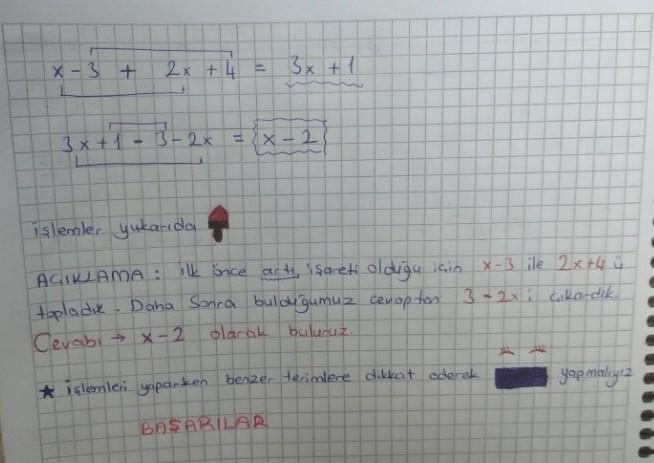 x - 3 + 2x + 4 = 3x + 1
3x + 1 - 3 - 2x = x - 2
işlemler yukarıda
AÇIKLAMA : ilk önce artı, işareti olduğu için x-3 ile 2x+4 ü
topladık. Daha sonra bulduğumuz cevaptan 3-2x i çıkardık.
Cevabı → x-2 olarak buluruz.
★ işlemleri yaparken benzer terimlere dikkat ederek yapmalıyız
BAŞARILAR